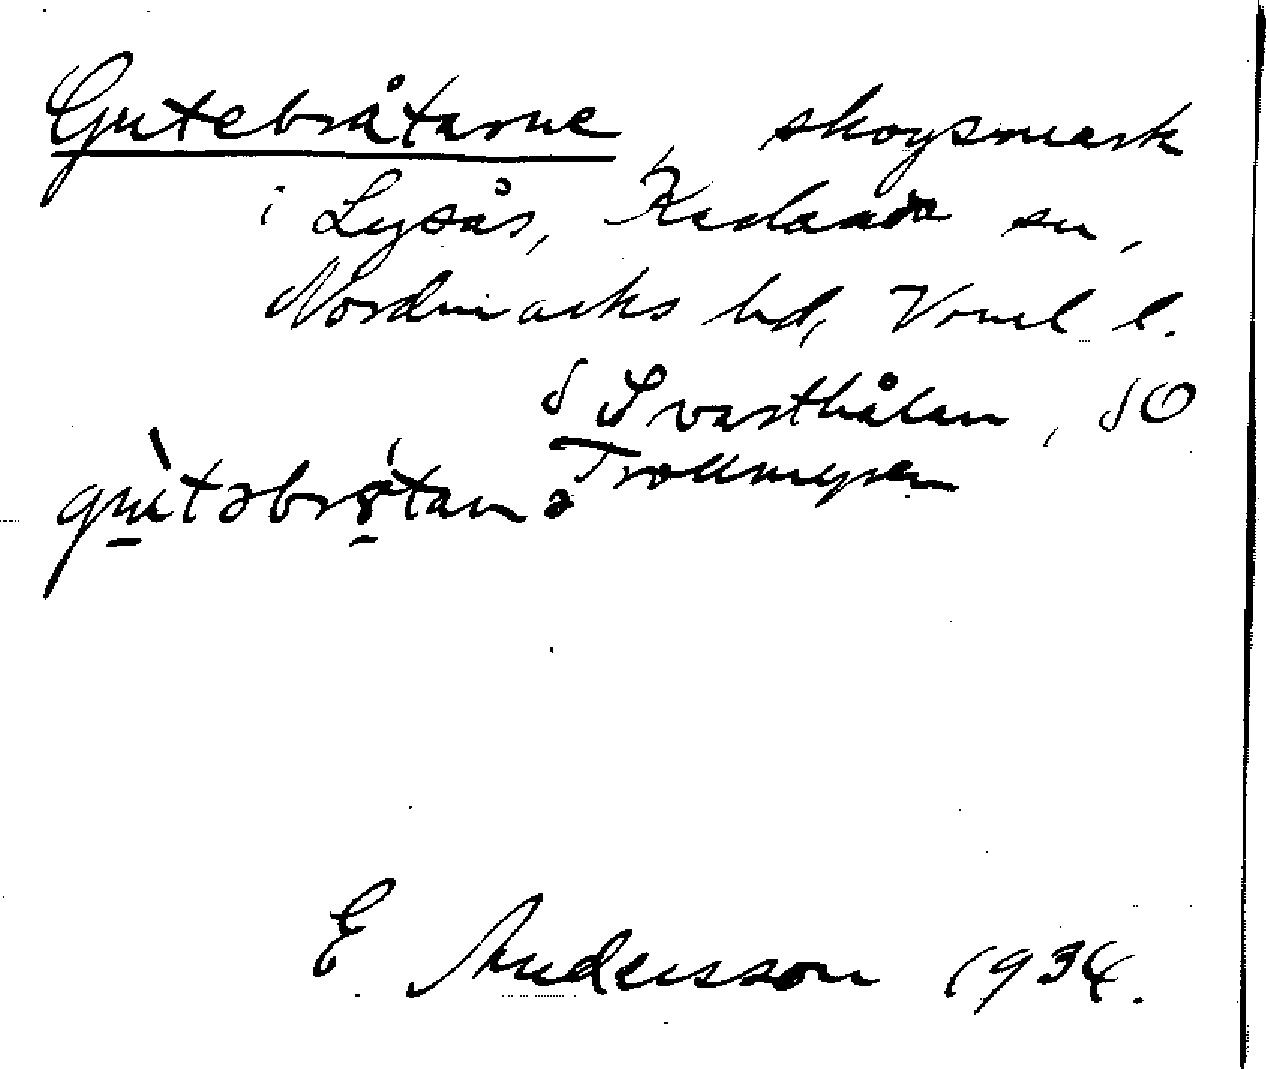 Gutebråtarne, skogsmark
i Lysås, sn,
Nordmarks hd, Vrml l.
S Svarthålan, SO
Trollmyren
E. Andersson 1934.